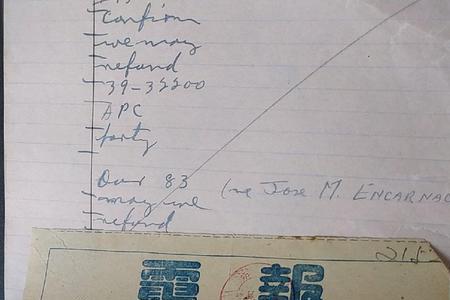 Confirm
we may
refund
39-35200
APC
forty
Our 83 (re Jose M. ENCARNAC
may we
refund
電報